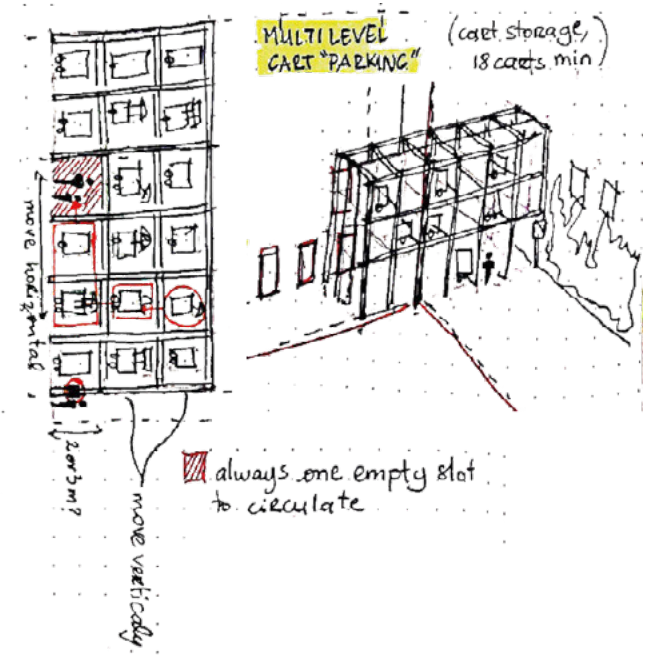 MULTILEVEL
CART "PARKING"
(cart storage,
18 carts min)
move horizontal
2 or 3m?
move verticaly
always one empty slot
to circulate